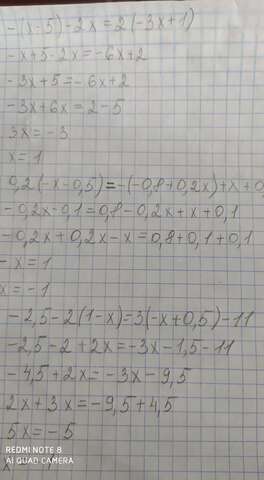 -(x-5)-2x=2(-3x+1)
-x+5-2x=-6x+2
-3x+5=-6x+2
-3x+6x=2-5
3x=-3
x=1
0,2(-x-0,5)=-(-0,8+0,2x)+x+0,
-0,2x-0,1=0,8-0,2x+x+0,1
-0,2x+0,2x-x=0,8+0,1+0,1
-x=1
x=-1
-2,5-2(1-x)=3(-x+0,5)-11
-2,5-2+2x=-3x-1,5-11
-4,5+2x=-3x-9,5
2x+3x=-9,5+4,5
5x=-5
REDMI NOTE 8
AI QUAD CAMERA